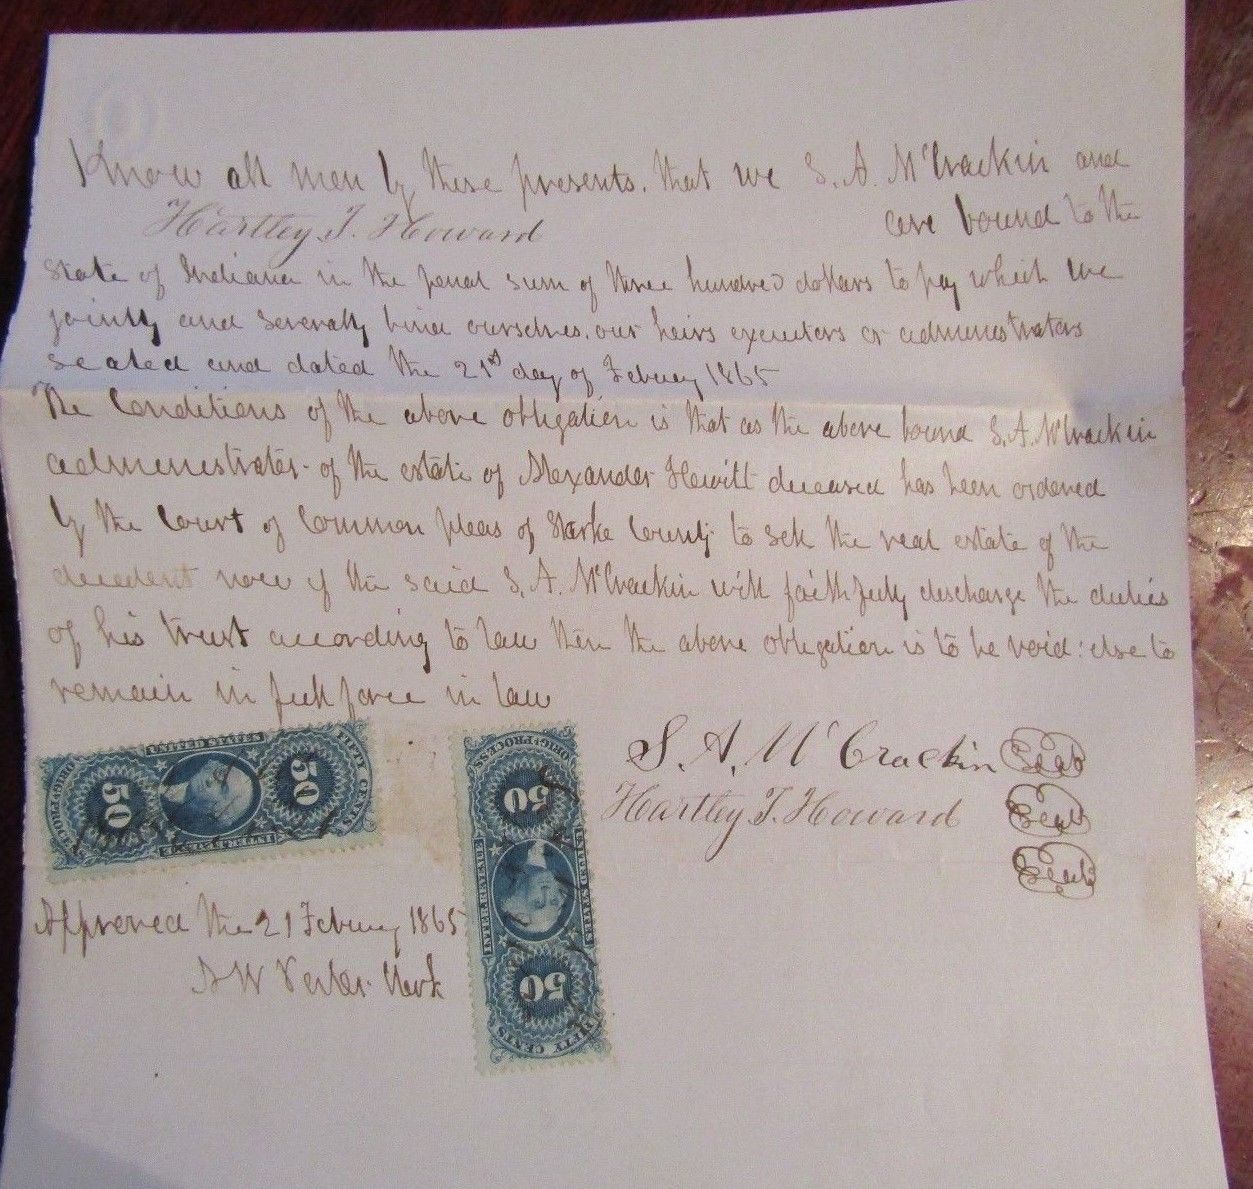 Know all men by these presents. that we S. A. McCrackin and
Hartley T. Howard are bound to the
State of Indiana in the penal sum of three hundred dollars to pay which we
jointly and severally bind ourselves, our heirs executors or administrators
sealed and dated the 21st day of Febuary 1865
The Conditions of the above obligation is that as the above bound S. A. McCrackin
administrator of the estate of Alexander Hewitt deceased has been ordered
by the Court of Common pleas of Starke County to sell the real estate of the
decedent now if the said S. A. McCrackin will faithfully discharge the duties
of his trust according to law then the above obligation is to be void: else to
remain in full force in law
S. A. McCrackin Seal
Hartley T. Howard Seal
Seal
Approved the 21 Febuary 1865
A W Clerk
ORIG. PROCESS
UNITED STATES
INTER. REVENUE
50
50
FIFTY CENTS
ORIG. PROCESS
50
INTER. REVENUE
UNITED STATES
50
FIFTY CENTS